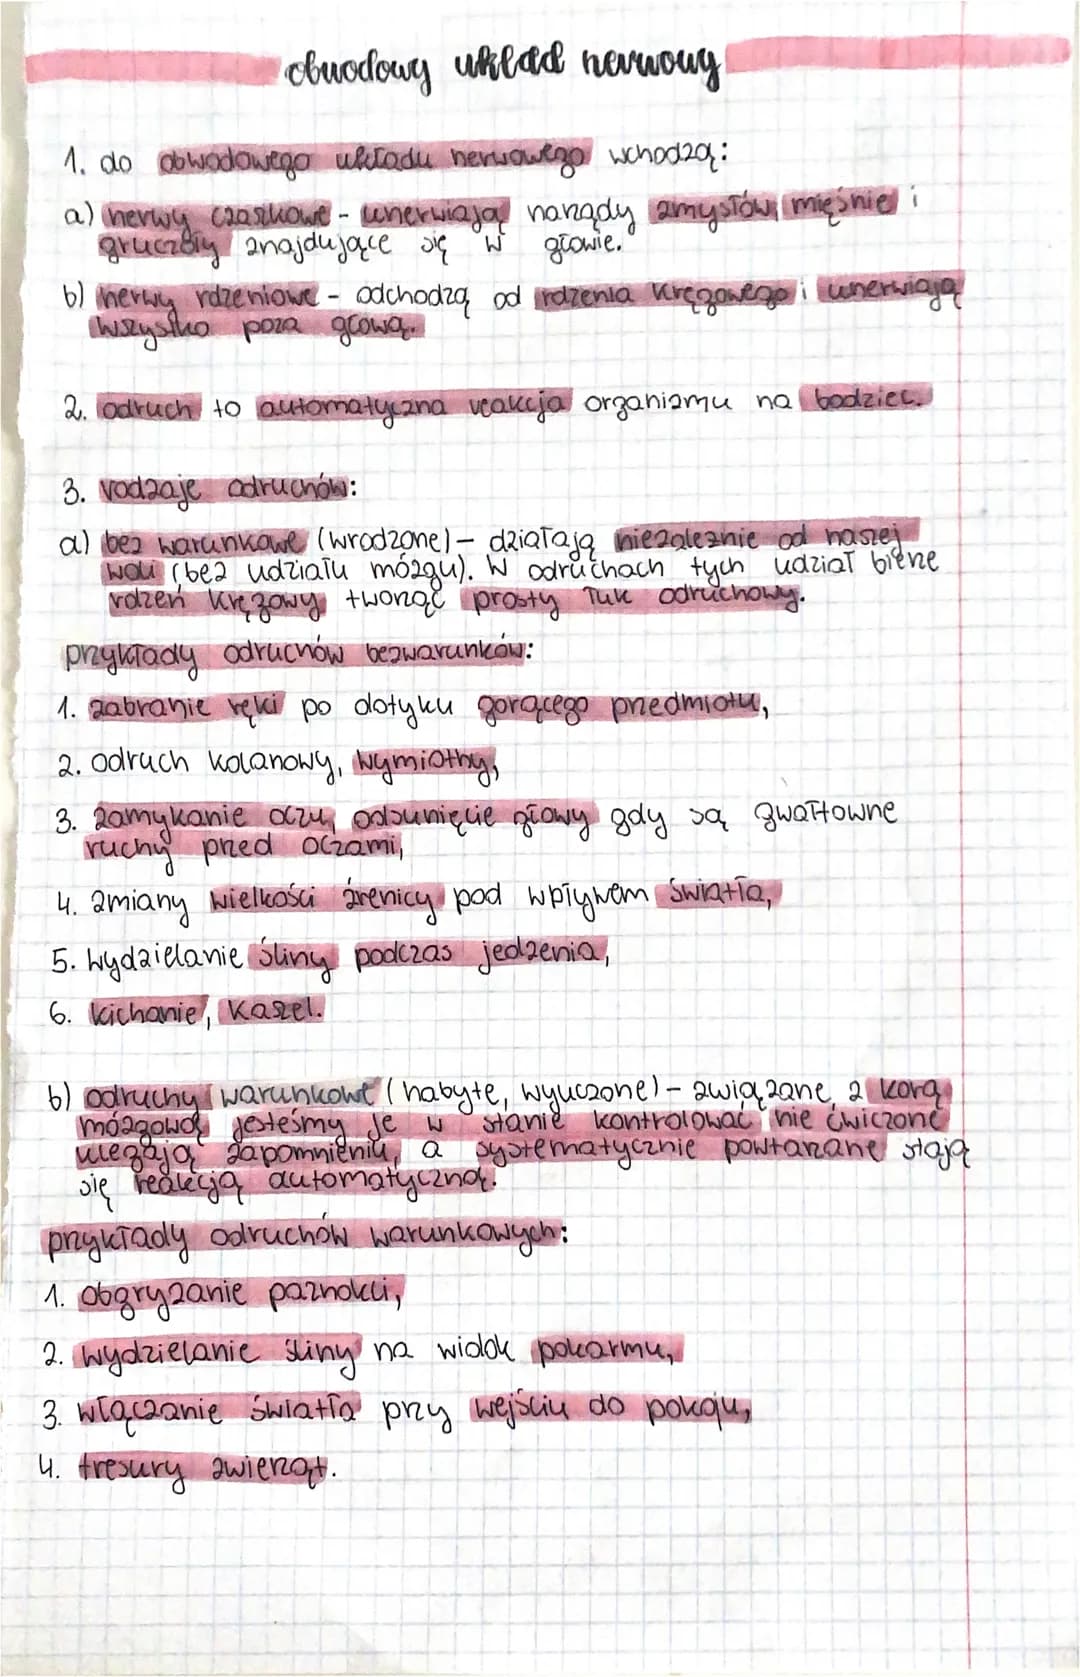 obwodowy układ nerwowy
1. do obwodowego układu nerwowego wchodzą:
a) nerwy czaszkowe - unerwiają narządy zmysłów, mięśnie i
gruczoły znajdujące się w głowie.
b) nerwy rdzeniowe - odchodzą od rdzenia kręgowego i unerwiają
wszystko poza głową.
2. odruch to automatyczna reakcja organizmu na bodziec.
3. rodzaje odruchów:
a) bez warunkowe (wrodzone) - działają niezależnie od naszej
woli (bez udziału mózgu). W odruchach tych udział bierze
rdzeń kręgowy tworząc prosty łuk odruchowy.
przykłady odruchów bezwarunków:
1. zabranie ręki po dotyku gorącego przedmiotu,
2. odruch kolanowy, wymiotny,
3. zamykanie oczu, odsunięcie głowy gdy są gwałtowne
ruchy przed oczami,
4. zmiany wielkości źrenicy pod wpływem światła,
5. wydzielanie śliny podczas jedzenia,
6. kichanie, kaszel.
b) odruchy warunkowe (nabyte, wyuczone) - związane z korą
mózgową jesteśmy je w stanie kontrolować nie ćwiczone
ulegają zapomnieniu, a systematycznie powtarzane stają
się reakcją automatyczną.
przykłady odruchów warunkowych:
1. obgryzanie paznokci,
2. wydzielanie śliny na widok pokarmu,
3. włączanie światła przy wejściu do pokoju,
4. tresury zwierząt.